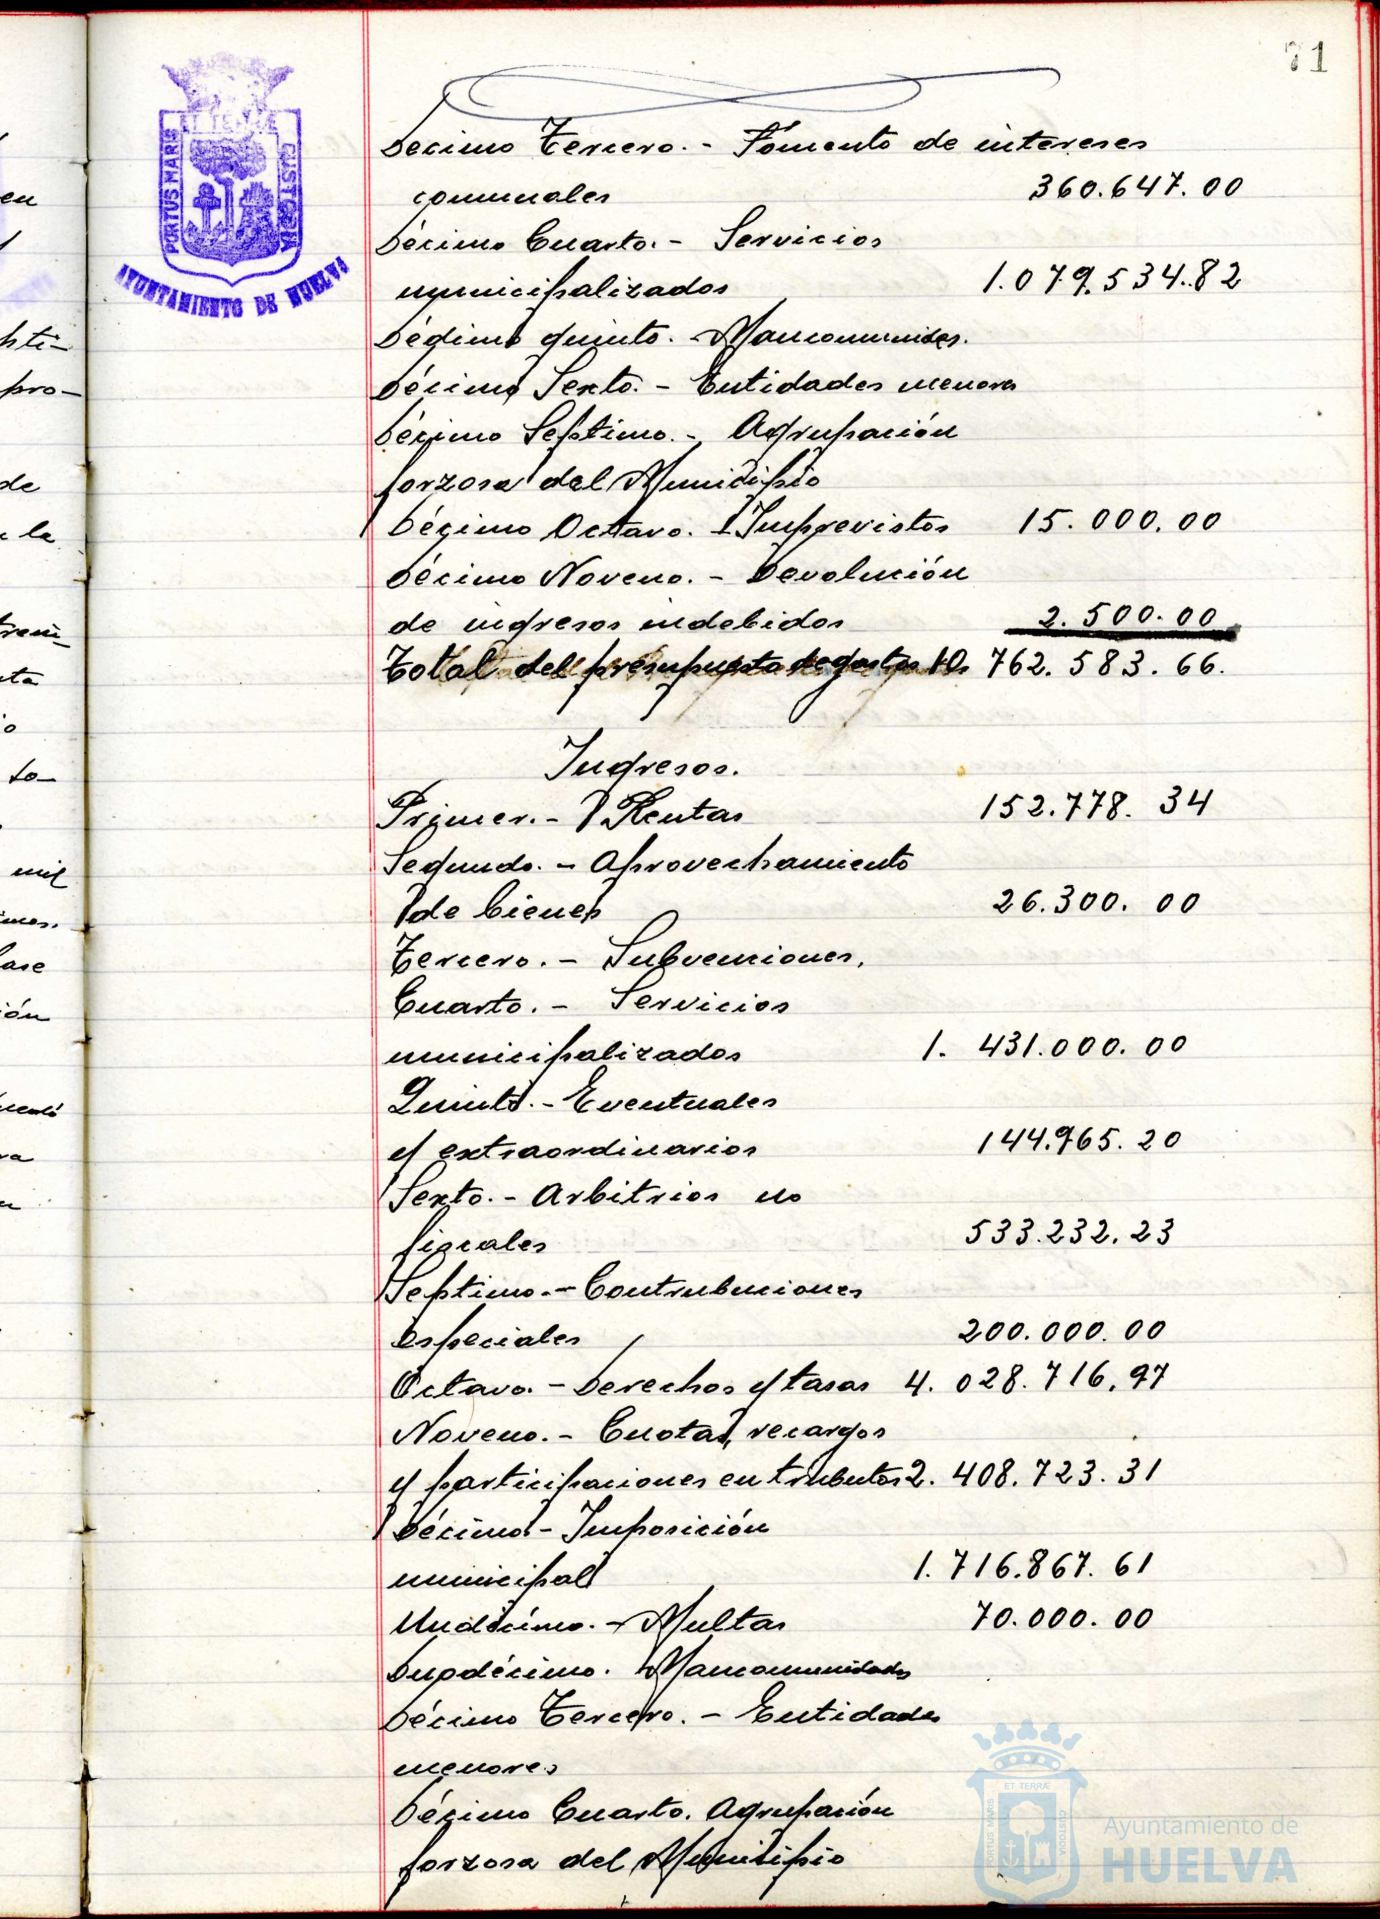 71
ET TERRÆ
PORTUS MARIS
CUSTODIA
AYUNTAMIENTO DE HUELVA
Decimo Tercero. - Fómento de intereses
comunales 360.647.00
Décimo Cuarto. - Servicios
municipalizados 1.079.534.82
Décimo quinto. - Mancomunides.
Décimo Sexto. - Entidades menores
Décimo Septimo. - Agrupación
forzosa del Municipio
Décimo Octavo. - Imprevistos 15.000.00
Décimo Noveno. - Devolución
de ingresos indebidos 2.500.00
Total del presupuesto de gastos 10. 762.583.66.
Ingresos.
Primer. - Rentas 152.778.34
Segundo. - Aprovechamiento
de bienes 26.300.00
Tercero. - Subvenciones.
Cuarto. - Servicios
municipalizados 1.431.000.00
Quinto. - Eventuales
y extraordinarios 144.965.20
Sexto. - Arbitrios no
fiscales 533.232.23
Septimo. - Contribuciones
especiales 200.000.00
Octavo. - Derechos y tasas 4.028.716,97
Noveno. - Cuotas, recargos
y participaciones en tributos 2.408.723.31
Décimo - Imposición
municipal 1.716.867.61
Undécimo. - Multas 70.000.00
Duodécimo. Mancomunidades
Décimo Tercero. - Entidades
menores
Décimo Cuarto. Agrupación
forzosa del Municipio
ET TERRÆ
PORTUS MARIS
CUSTODIA
Ayuntamiento de
HUELVA
en
de
la
to-
mil
pro-
ión